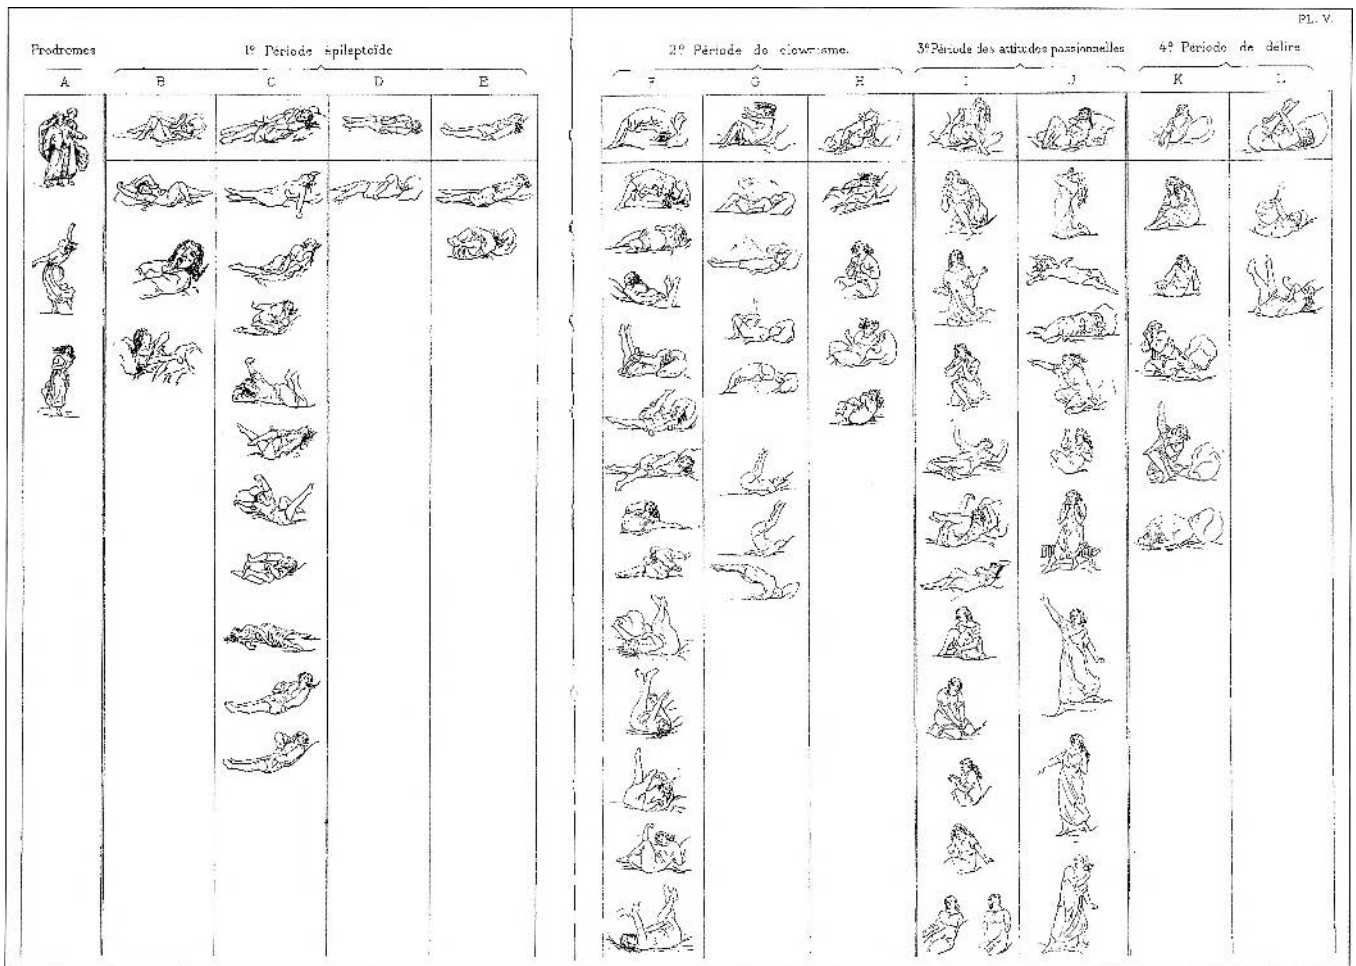 PL. V.
Prodromes
1e Période épileptoïde
2e Période de clownisme.
3e Période des attitudes passionnelles
4e Période de délire
A B C D E F G H I J K L